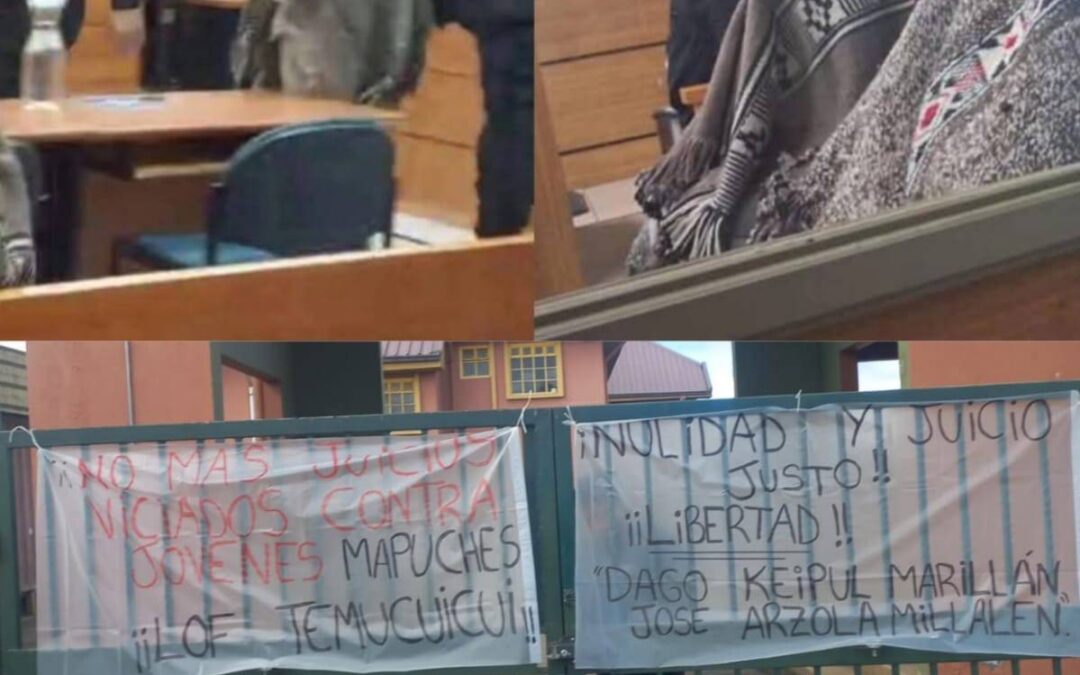 ¡¡NO MAS JUICIOS
VICIADOS CONTRA
JOVENES MAPUCHES
¡¡LOF TEMUCUICUI!!
¡NULIDAD Y JUICIO
JUSTO!!
¡¡LiBERTAD!!
"DAGO KEiPUL MARiLLÁN
JOSE ARZOLA MiLLALEN."